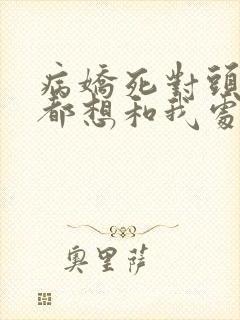 病嬌死對頭
都想和我處
奧里薩